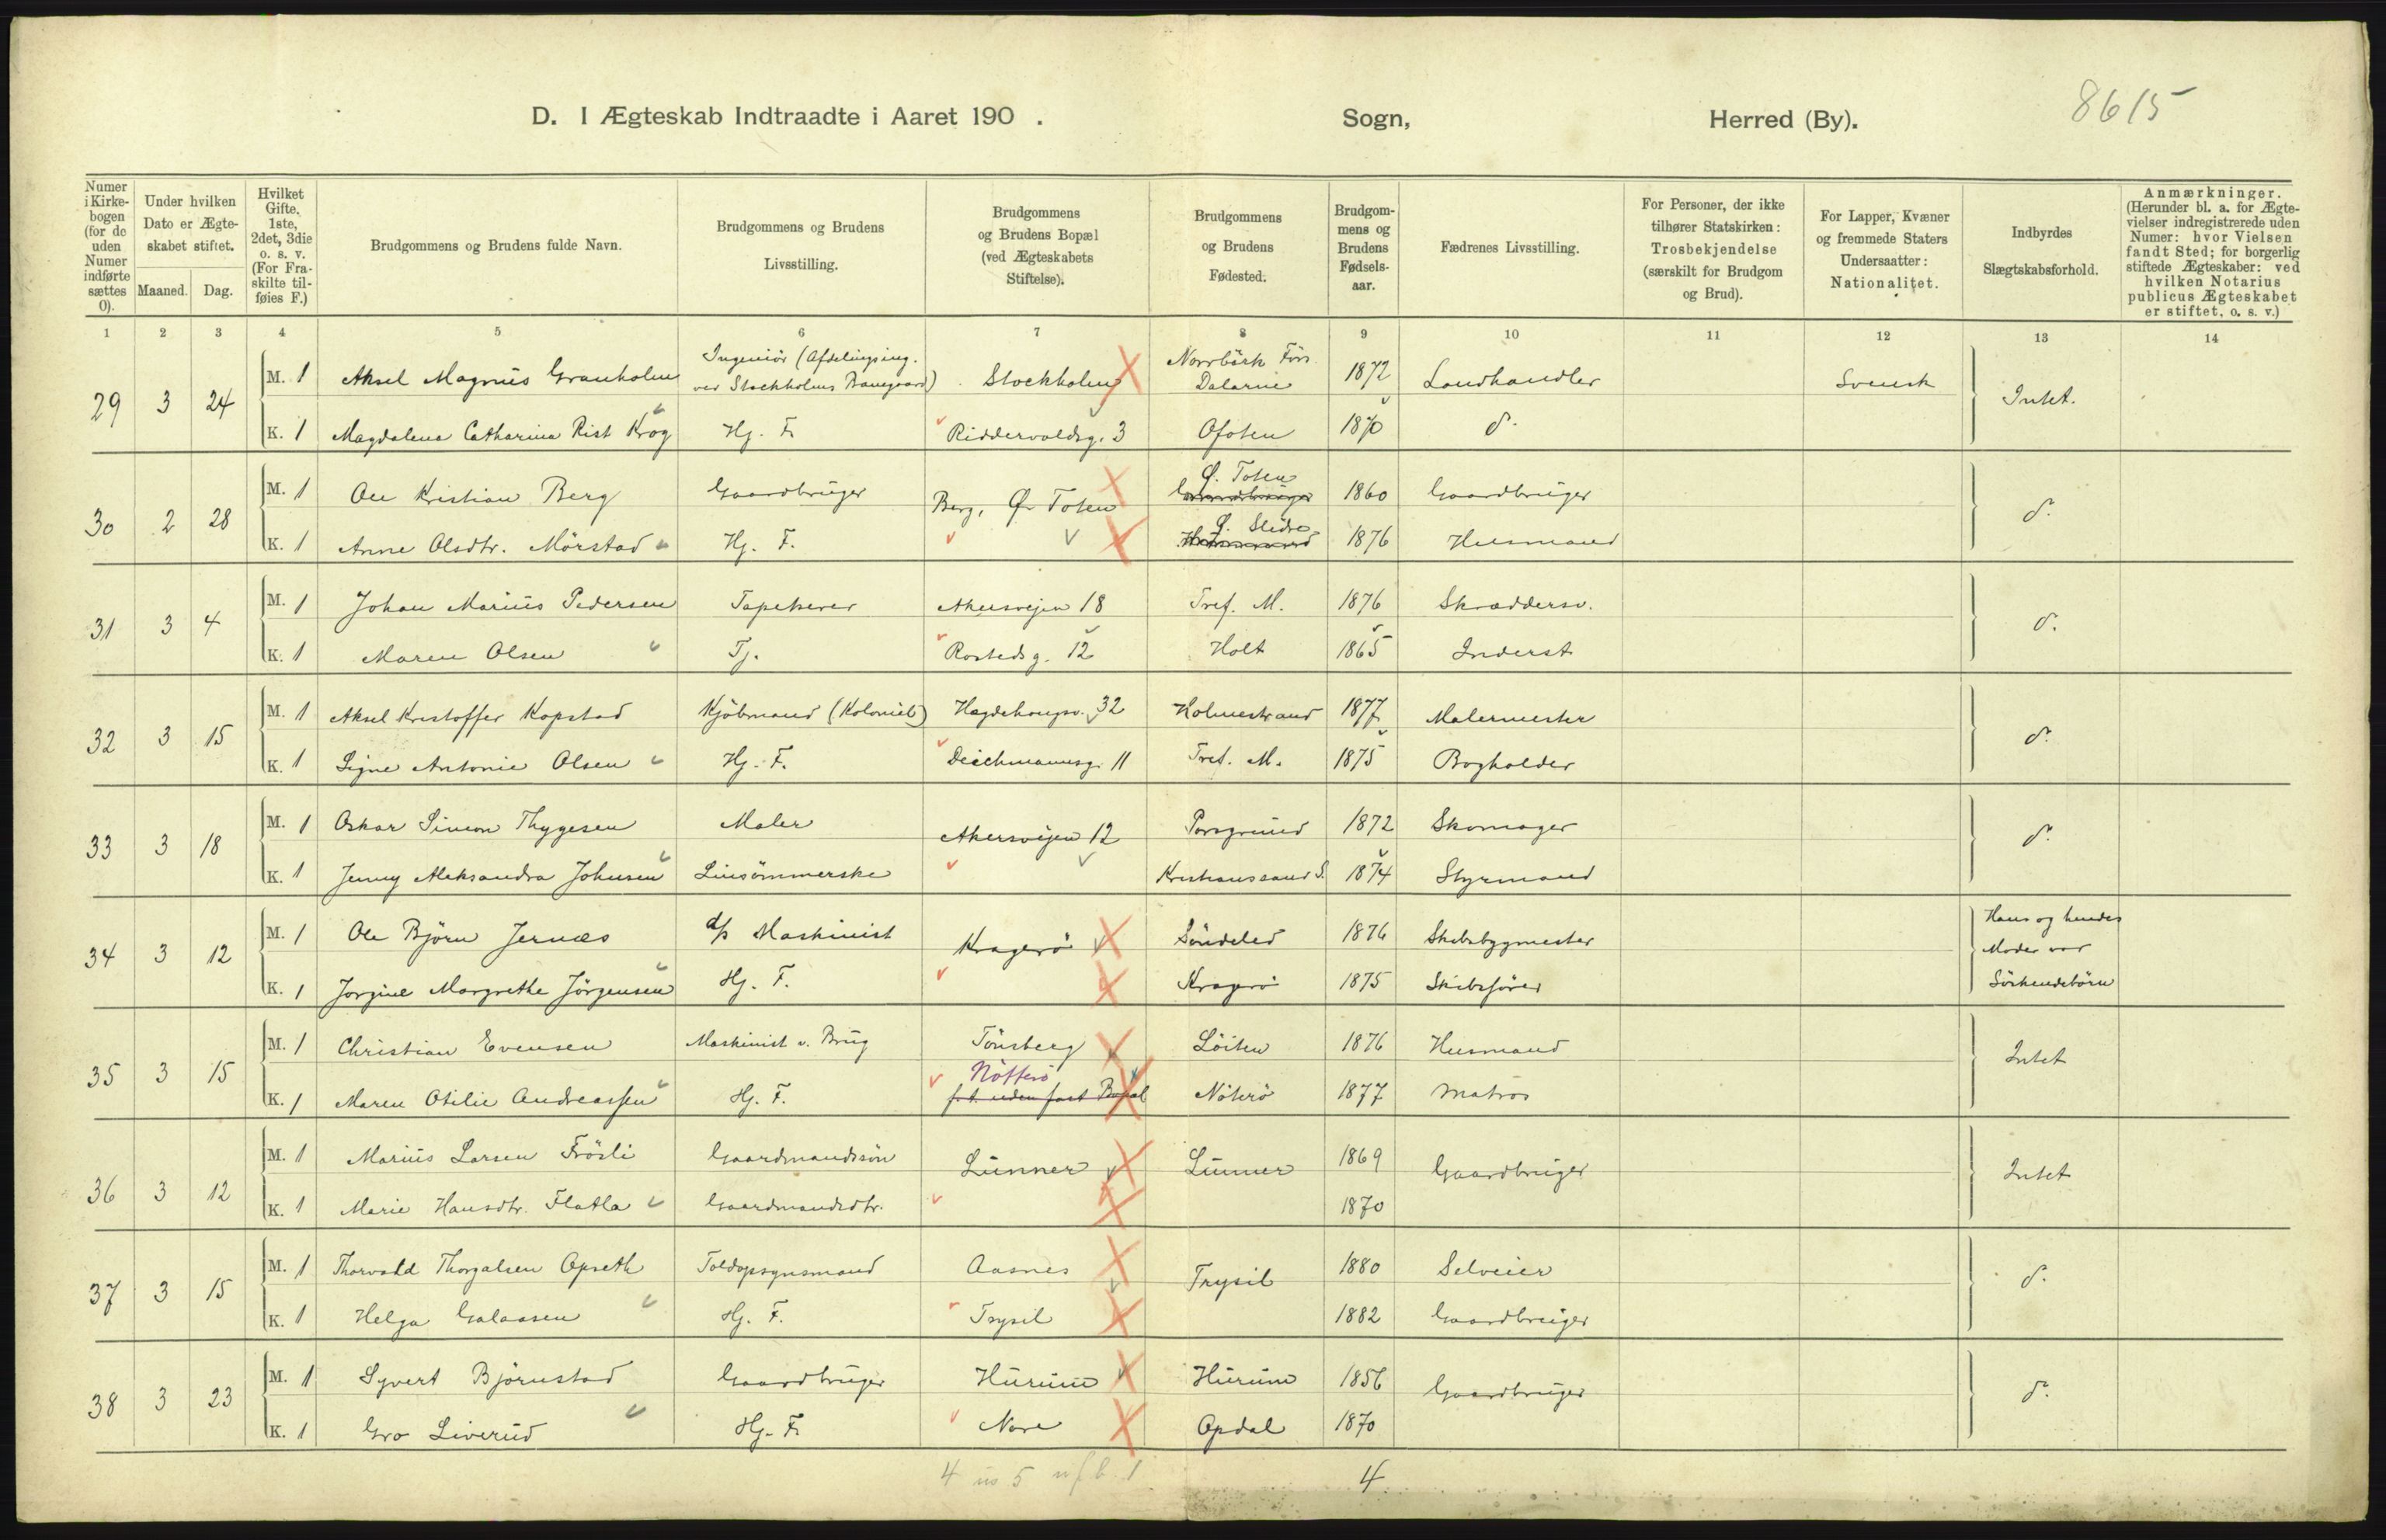 8615
D. I Ægteskab Indtraadte i Aaret 190 . Sogn, Herred (By).
Numer i Kirkebogen (for de uden Numer indførte sættes 0).
Under hvilken Dato er Ægteskabet stiftet.
Maaned. Dag.
Hvilket Gifte, 1ste, 2det, 3die o. s. v. (For Fraskilte tilføies F.)
Brudgommens og Brudens fulde Navn.
Brudgommens og Brudens Livsstilling.
Brudgommens og Brudens Bopæl (ved Ægteskabets Stiftelse).
Brudgommens og Brudens Fødested.
Brudgommens og Brudens Fødselsaar.
Fædrenes Livsstilling.
For Personer, der ikke tilhører Statskirken: Trosbekjendelse (særskilt for Brudgom og Brud).
For Lapper, Kvæner og fremmede Staters Undersaatter: Nationalitet.
Indbyrdes Slægtskabsforhold.
Anmærkninger. (Herunder bl. a. for Ægtevielser indregistrerede uden Numer: hvor Vielsen fandt Sted; for borgerlig stiftede Ægteskaber: ved hvilken Notarius publicus Ægteskabet er stiftet, o. s. v.)
1 2 3 4 5 6 7 8 9 10 11 12 13 14
29 3 24 M. 1 Aksel Magnus Granholm Ingeniör (Afdelingsing. ved Stockholms Banegaard) Stockholm Norrbärk Förs. Dalarne 1872 Landhandler Svensk Intet.
K. 1 Magdalena Catharina Rist Krog Hj. F. Riddervoldsg. 3 Ofoten 1870 d.
30 2 28 M. 1 Ole Kristian Berg Gaardbruger Berg, Ø. Toten Ø. Toten Gaardbruger 1860 Gaardbruger d.
K. 1 Anne Olsdtr. Mörstad Hj. F. Ø. Slidre Husmand 1876 Husmand
31 3 4 M. 1 Johan Marius Pedersen Tapetserer Akersvejen 18 Tref. M. 1876 Skræddersv. d.
K. 1 Maren Olsen Tj. Rostedsg. 12 Holt 1865 Inderst
32 3 15 M. 1 Aksel Kristoffer Kopstad Kjöbmand (Kolonial) Hegdehougsv. 32 Holmestrand 1877 Malermester d.
K. 1 Signe Antonie Olsen Hj. F. Deichmannsg. 11 Tref. M. 1875 Bogholder
33 3 18 M. 1 Oskar Simon Thygesen Maler Akersvejen 12 Porsgrund 1872 Skomager d.
K. 1 Jenny Aleksandra Johnsen Linsömmerske Kristianssand S. 1874 Styrmand
34 3 12 M. 1 Ole Björn Jernæs d/s Maskinist Kragerö Söndeled 1876 Skibsbygmester Hans og hendes Moder var Söskendebörn
K. 1 Jorgine Margrethe Jörgensen Hj. F. Kragerö 1875 Skibsförer
35 3 15 M. 1 Christian Evensen Maskinist v. Brug Tönsberg Löiten 1876 Husmand Intet
K. 1 Maren Otilie Andreassen Hj. F. Nötterö f. t. uden fast Bopæl Nöterö 1877 Matros
36 3 12 M. 1 Marius Larsen Frösli Gaardmandssön Lunner Lunner 1869 Gaardbruger Intet
K. 1 Marie Hansdtr. Flatla Gaardmandsdtr. 1870
37 3 15 M. 1 Thorvald Thorgalsen Opseth Toldopsynsmand Aasnes Trysil 1880 Selveier d.
K. 1 Helga Galaasen Hj. F. Trysil 1882 Gaardbruger
38 3 23 M. 1 Syvert Björnstad Gaardbruger Hurum Hurum 1856 Gaardbruger d.
K. 1 Gro Liverud Hj. F. Nore Opdal 1870
4 5 1 4